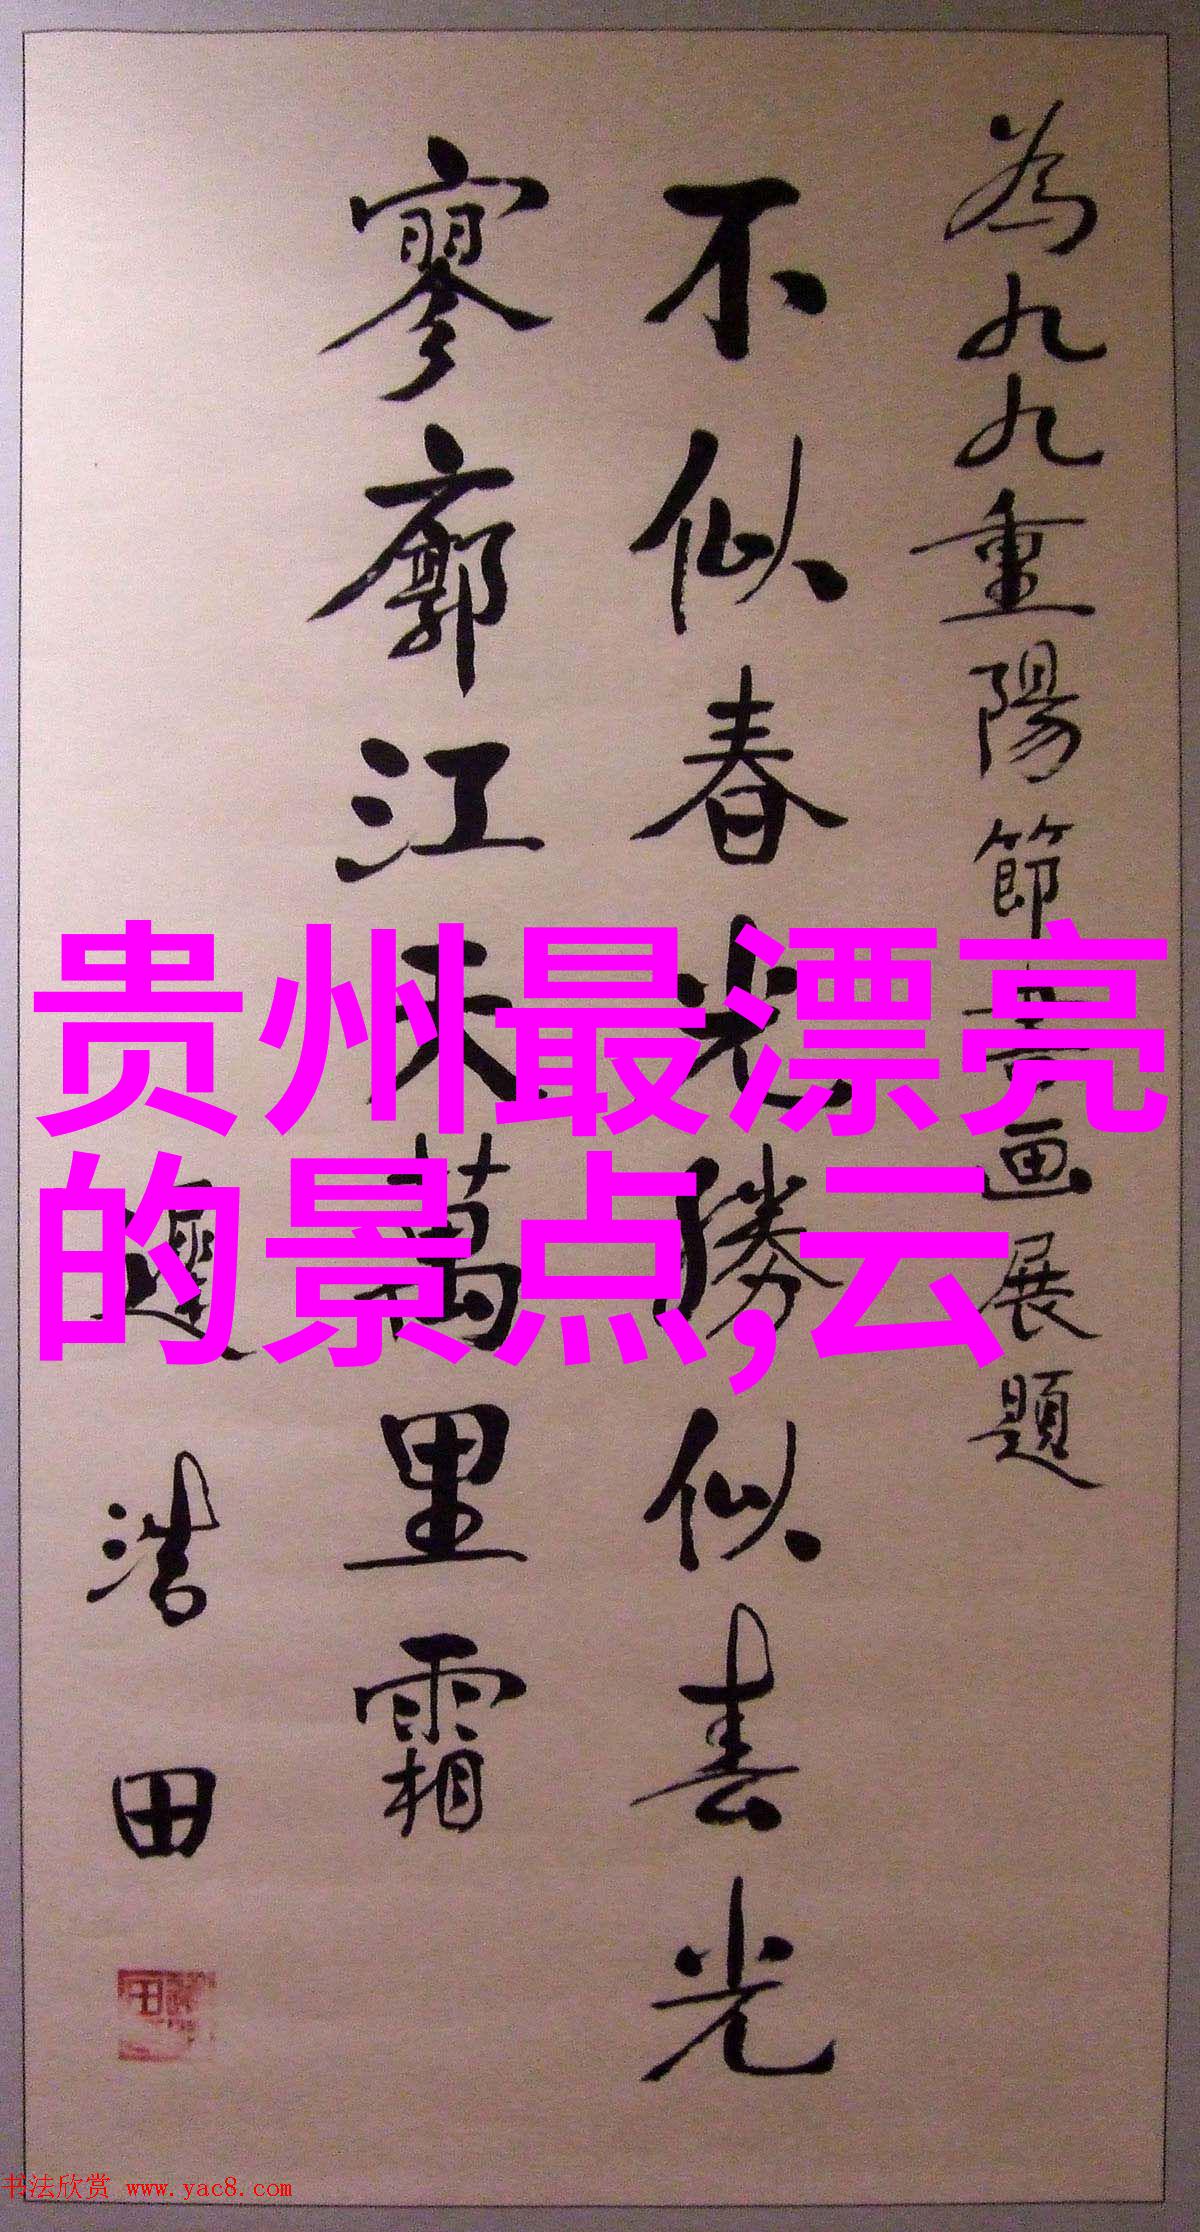 為九九重陽節書画展題
不似春光勝似春光
寥廓江天萬里霜
遲浩田
贵州最漂亮
的景点,云
书法欣赏 www.yac8.com